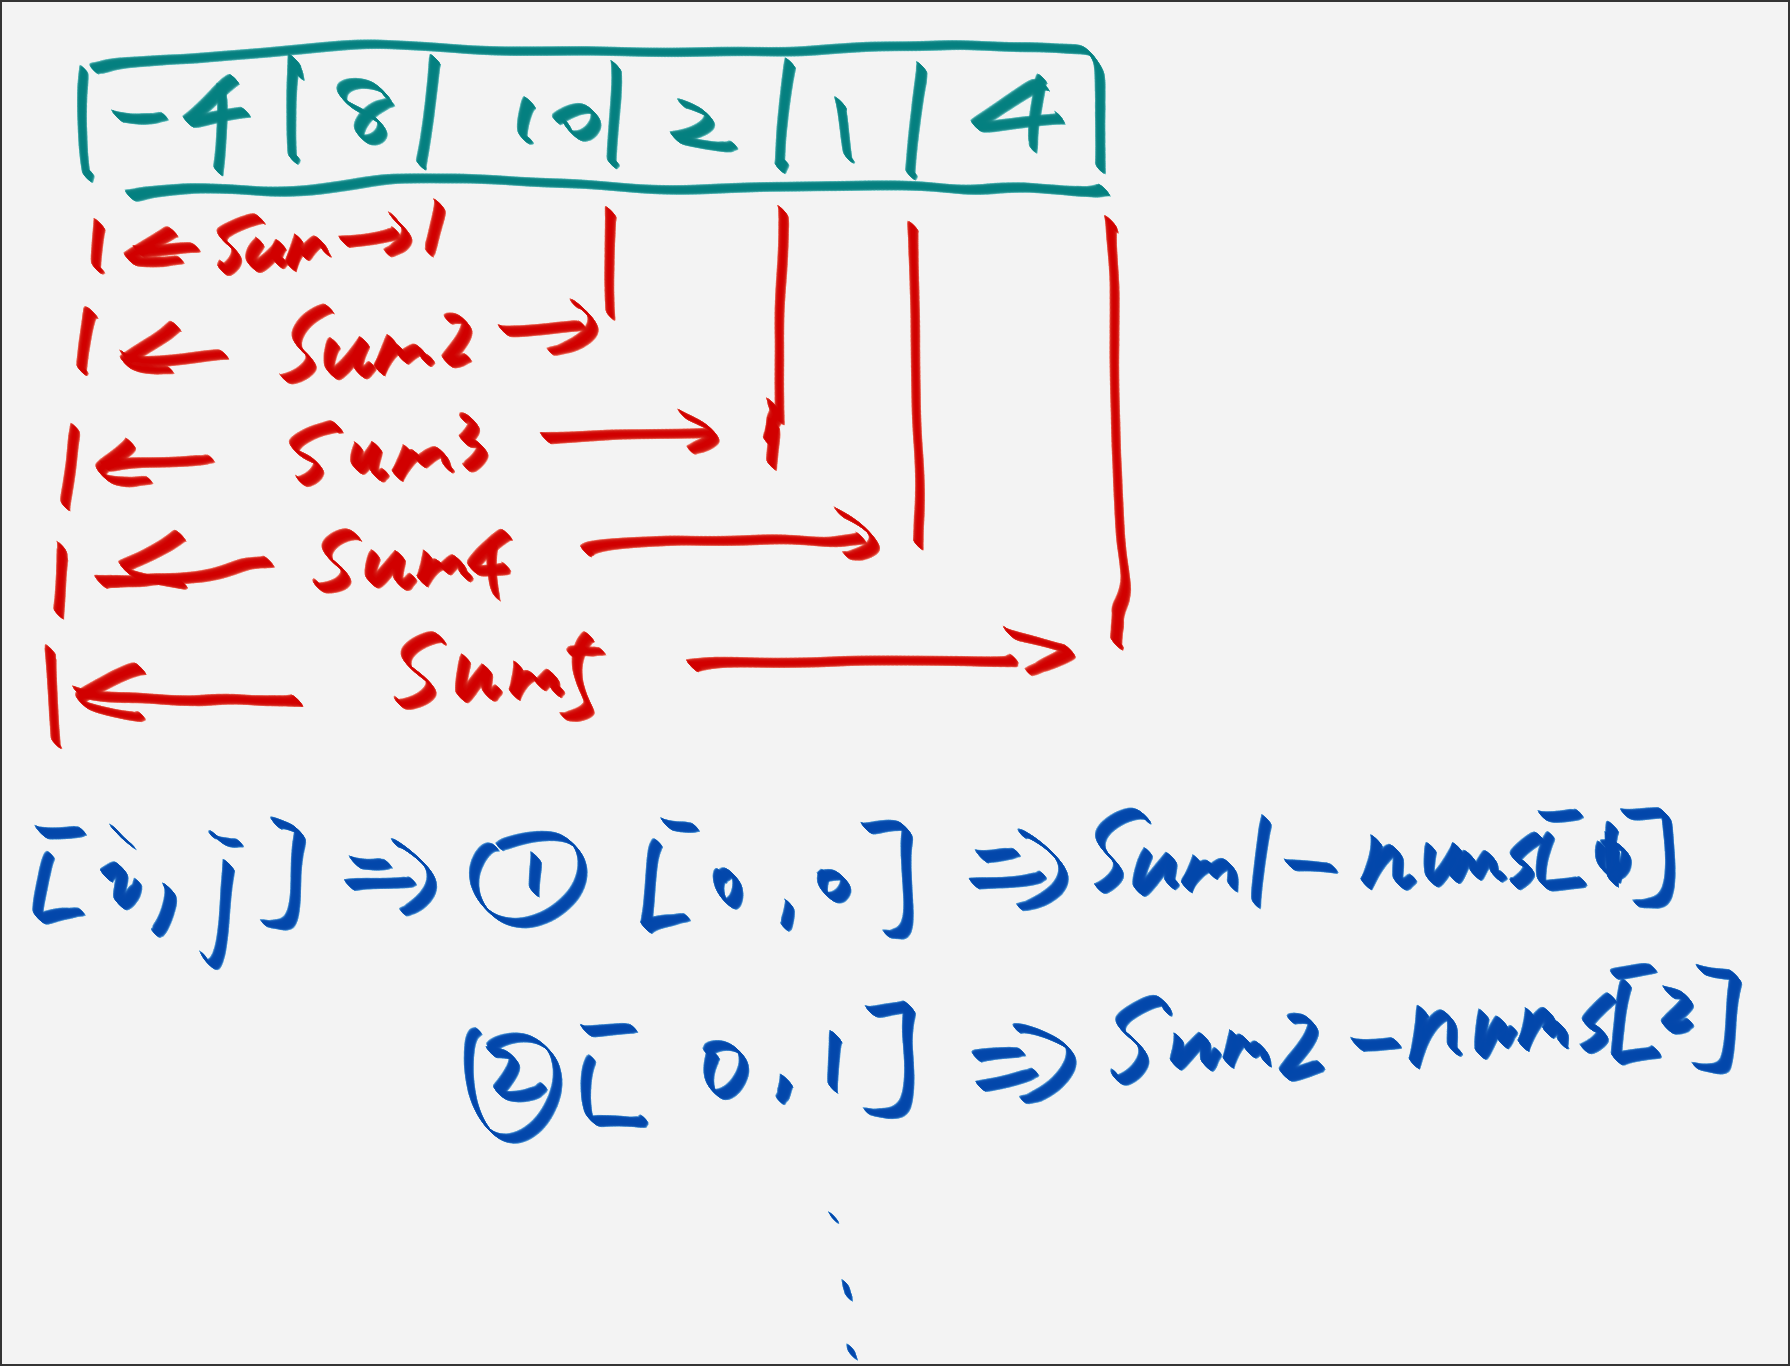 -4 | 8 | 10 | 2 | 1 | 4
|← sum →|
|← sum2 →
|← sum3 →
|← sum4 →
|← sum5 →
[i, j] ⇒ ① [0, 0] ⇒ sum1 - nums[]
② [0, 1] ⇒ sum2 - nums[2]